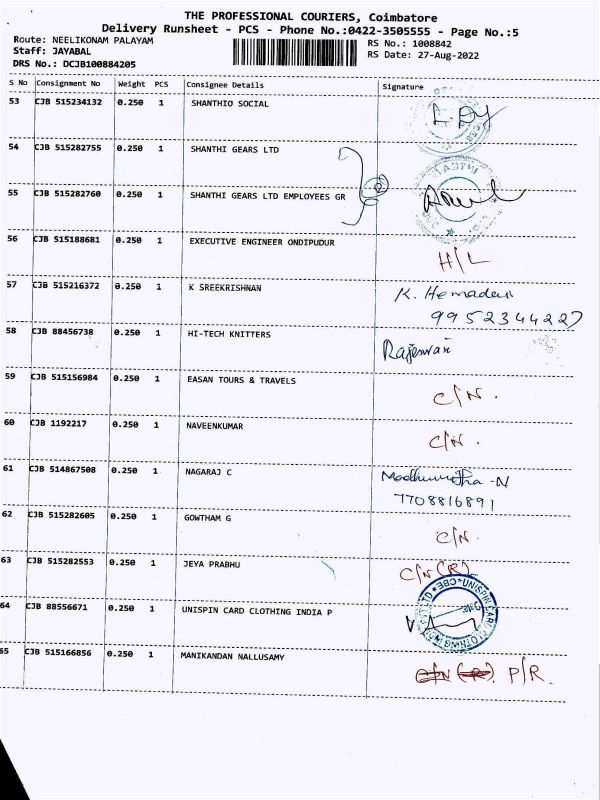 THE PROFESSIONAL COURIERS, Coimbatore
Delivery Runsheet - PCS - Phone No.:0422-3505555 - Page No.:5
Route: NEELIKONAM PALAYAM
RS No.: 1008842
Staff: JAYABAL
RS Date: 27-Aug-2022
DRS No.: DCJB100884205
S No Consignment No Weight PCS Consignee Details Signature
53 CJB 515234132 0.250 1 SHANTHIO SOCIAL
54 CJB 515282755 0.250 1 SHANTHI GEARS LTD
55 CJB 515282760 0.250 1 SHANTHI GEARS LTD EMPLOYEES GR
56 CJB 515188681 0.250 1 EXECUTIVE ENGINEER ONDIPUDUR H/L
57 CJB 515216372 0.250 1 K SREEKRISHNAN K. Hemadevi
9952344227
58 CJB 88456738 0.250 1 HI-TECH KNITTERS Rajeswari
59 CJB 515156984 0.250 1 EASAN TOURS & TRAVELS C/N.
60 CJB 1192217 0.250 1 NAVEENKUMAR C/N.
61 CJB 514867508 0.250 1 NAGARAJ C
7708816891
62 CJB 515282605 0.250 1 GOWTHAM G C/N.
63 CJB 515282553 0.250 1 JEYA PRABHU C/N (R)
64 CJB 88556671 0.250 1 UNISPIN CARD CLOTHING INDIA P
UNISPIN CARD CLOTHING LTD * CBE *
65 CJB 515166856 0.250 1 MANIKANDAN NALLUSAMY C/N (R). P/R.